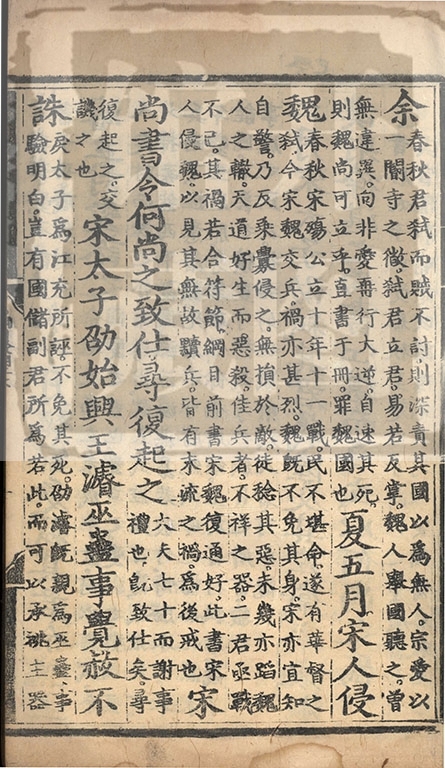 余
春秋君弑而賊不討則深責其國以為無人。宗愛以
一閽寺之微。弑君立君。易若反掌。魏人舉國聽之。曾
無違異。向非愛再行大逆。自速其死。
則魏尚可立乎。直書于冊。罪魏國也。
夏五月宋人侵
魏
春秋宋殤公立十年十一戰。民不堪命。遂有華督之
弑。今宋魏交兵。禍亦甚烈。魏旣不免其身。宋亦宜知
自警。乃反乘釁侵之。無損於敵。徒稔其惡。未幾亦蹈魏
人之轍。天道好生而惡殺。佳兵者。不祥之器。二君亟戰
不已。其禍若合符節。綱目前書宋魏復通好。此書宋
人侵魏。以見其無故黷兵。皆有末之禍。為後戒也
宋
尚書令何尚之致仕尋復起之
大夫七十而謝事
禮也。旣致仕矣。尋
復起之。交
譏之也
宋太子劭始興王濬巫蠱事覺赦不
誅
戾太子為江充所誣。不免其死。劭濬旣親為巫蠱。事
驗明白。豈有國儲副君所為若此。而可以承祧主器